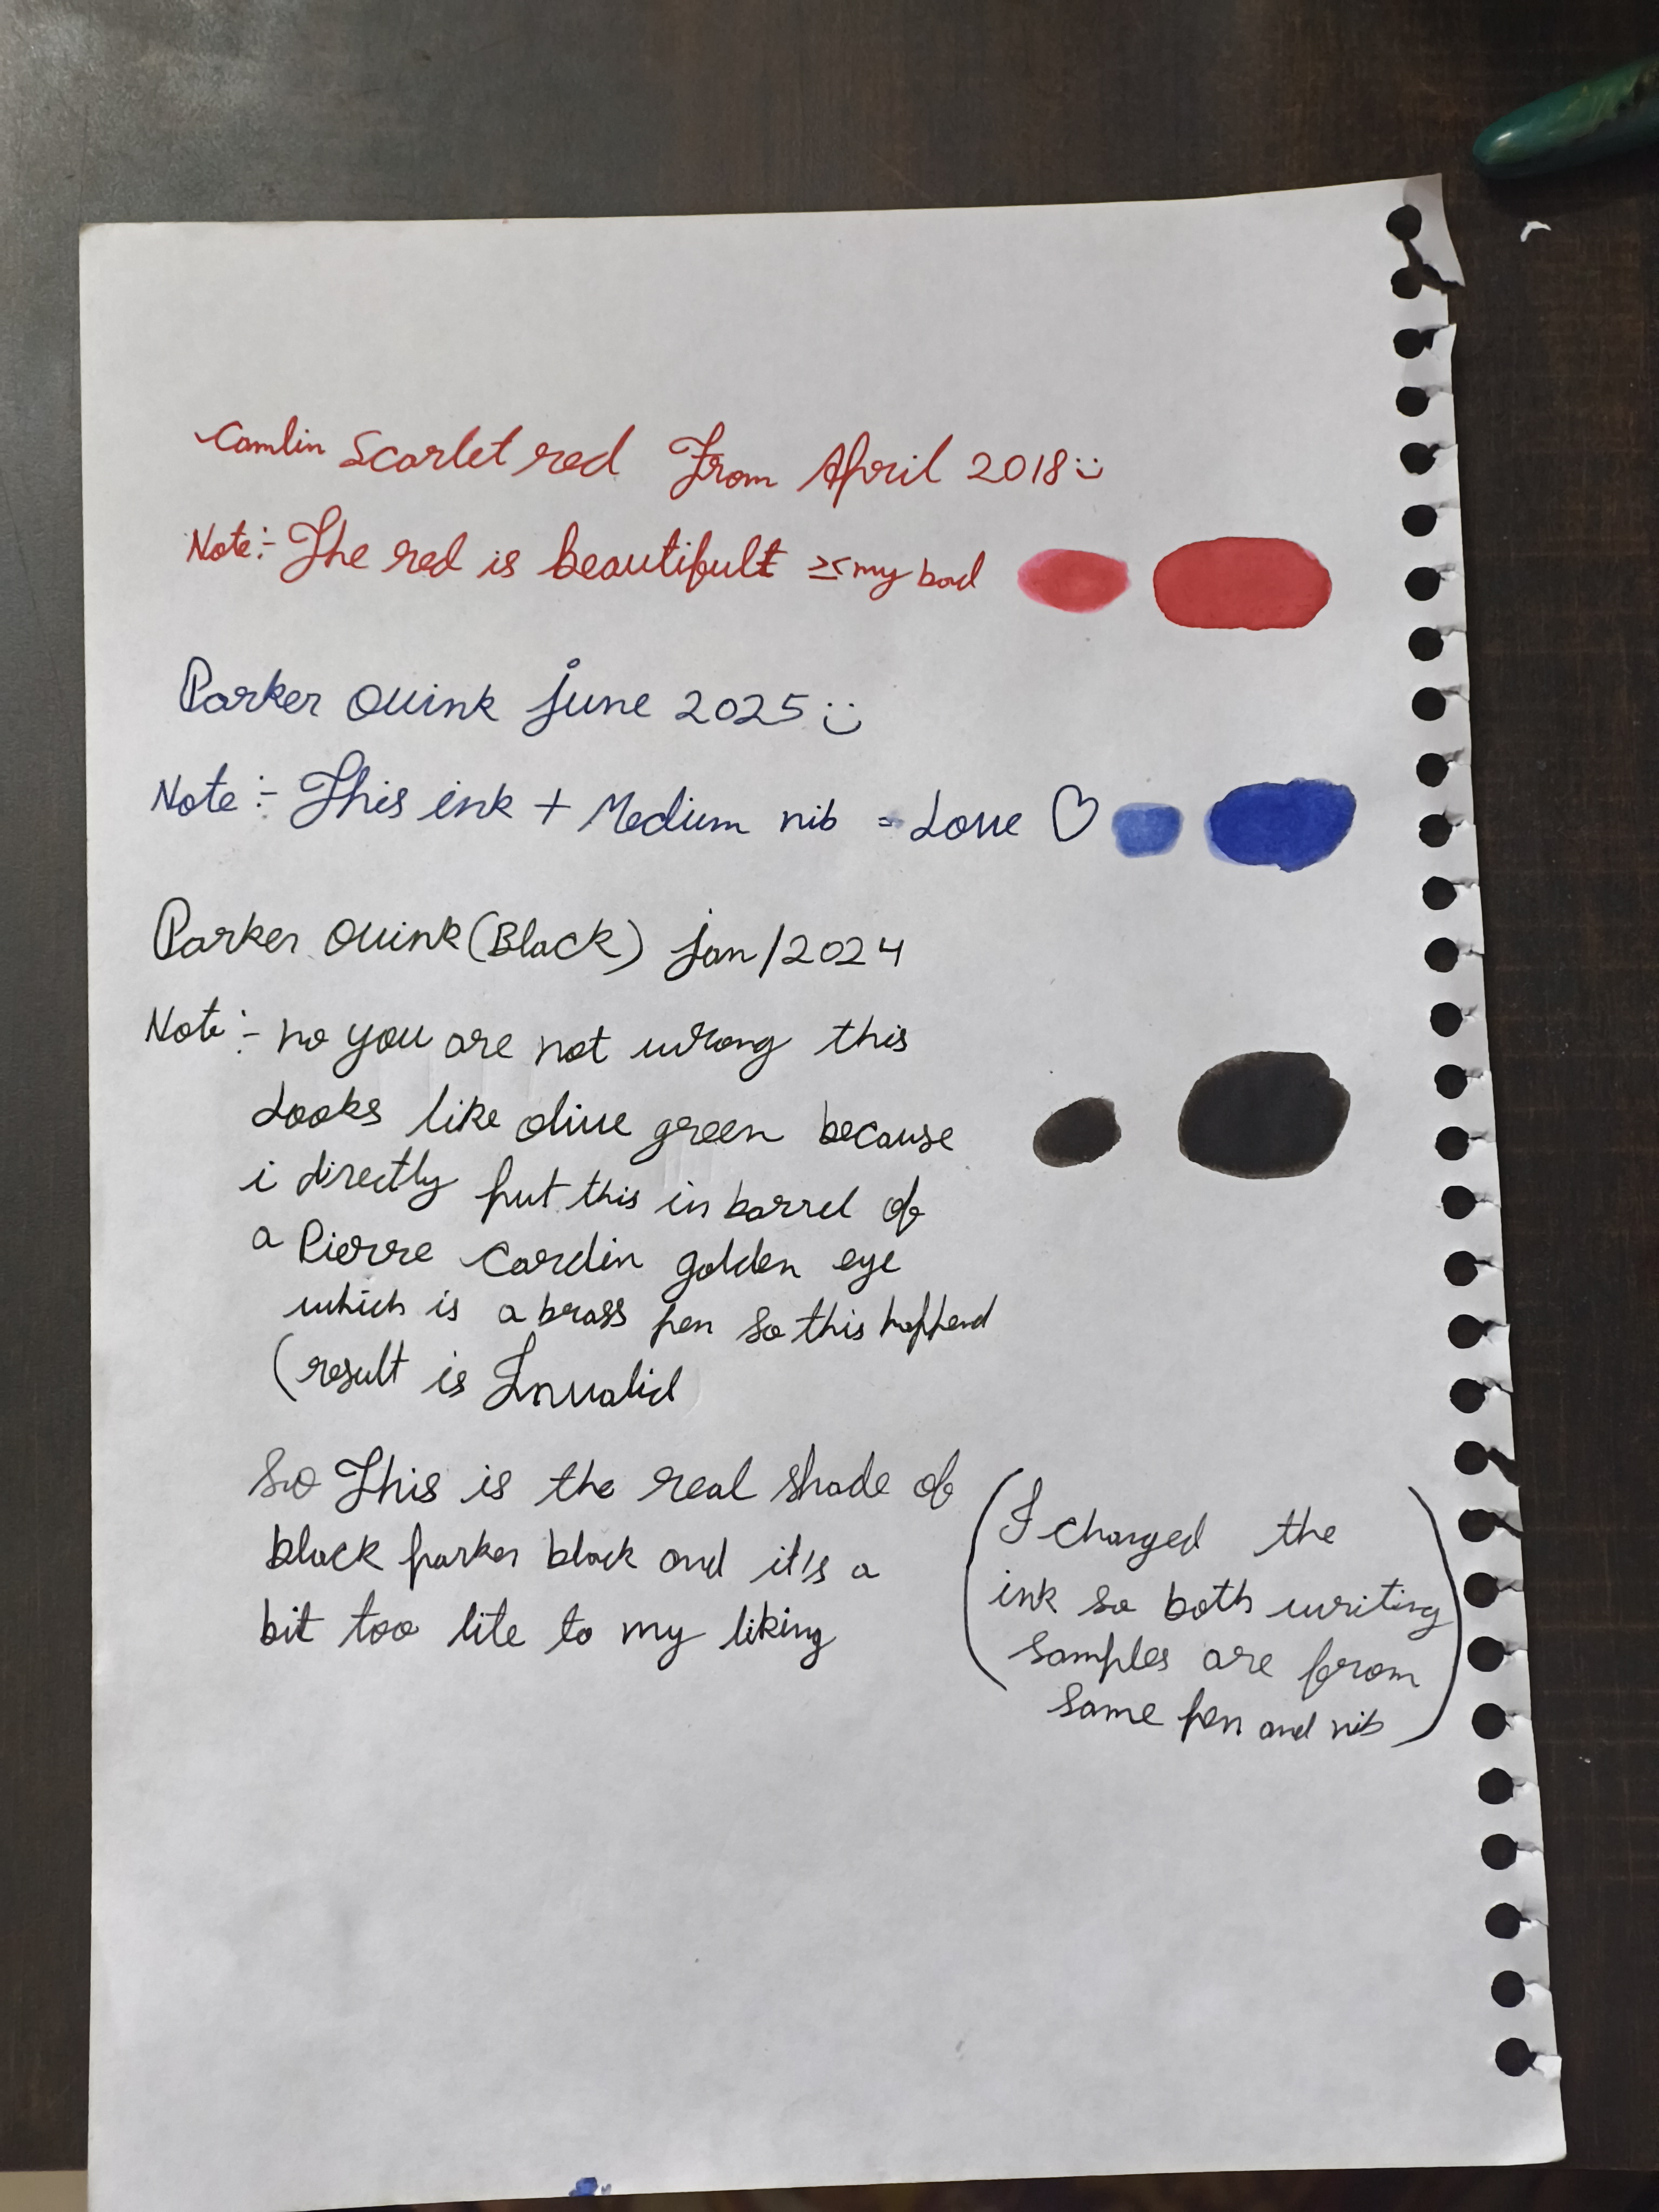 Camlin Scarlet red From April 2018 :)
Note:- The red is beautifult >< my bad
Parker Quink june 2025 :)
Note:- This ink + Medium nib = Love ♡
Parker Quink (Black) jan/2024
Note:- no you are not wrong this
Looks like olive green because
i directly put this in barrel of
a Pierre Cardin golden eye
which is a brass pen so this happend
(result is Invalid
So This is the real shade of
black parker black and it's a
bit too lite to my liking
(I changed the
ink so both writing
samples are from
same pen and nib)